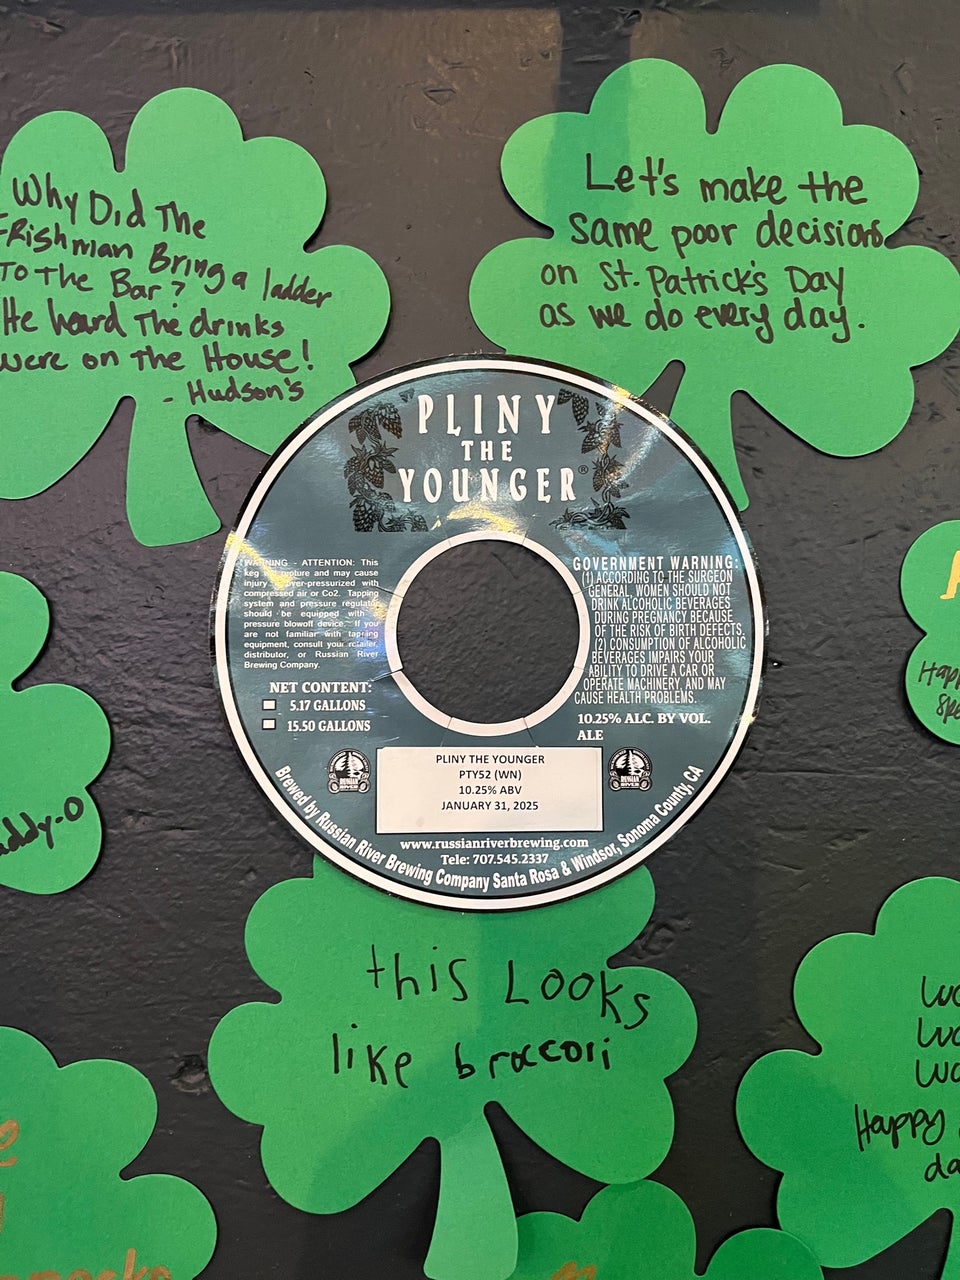 Why Did The
Irishman Bring a ladder
To The Bar?
He heard The drinks
were on The House!
- Hudson's
Let's make the
same poor decisions
on St. Patrick's Day
as we do every day.
PLINY
THE
YOUNGER®
WARNING - ATTENTION: This
keg will rupture and may cause
injury if over-pressurized with
compressed air or Co2. Tapping
system and pressure regulator
should be equipped with a
pressure blowoff device. If you
are not familiar with tapping
equipment, consult your retailer,
distributor, or Russian River
Brewing Company.
NET CONTENT:
5.17 GALLONS
15.50 GALLONS
GOVERNMENT WARNING:
(1) ACCORDING TO THE SURGEON
GENERAL, WOMEN SHOULD NOT
DRINK ALCOHOLIC BEVERAGES
DURING PREGNANCY BECAUSE
OF THE RISK OF BIRTH DEFECTS.
(2) CONSUMPTION OF ALCOHOLIC
BEVERAGES IMPAIRS YOUR
ABILITY TO DRIVE A CAR OR
OPERATE MACHINERY, AND MAY
CAUSE HEALTH PROBLEMS.
10.25% ALC. BY VOL.
ALE
PLINY THE YOUNGER
PTY52 (WN)
10.25% ABV
JANUARY 31, 2025
RUSSIAN
RIVER
RUSSIAN
RIVER
www.russianriverbrewing.com
Tele: 707.545.2337
Brewed by Russian River Brewing Company Santa Rosa & Windsor, Sonoma County, CA
addy-O
this Looks
like broccoli
Happy